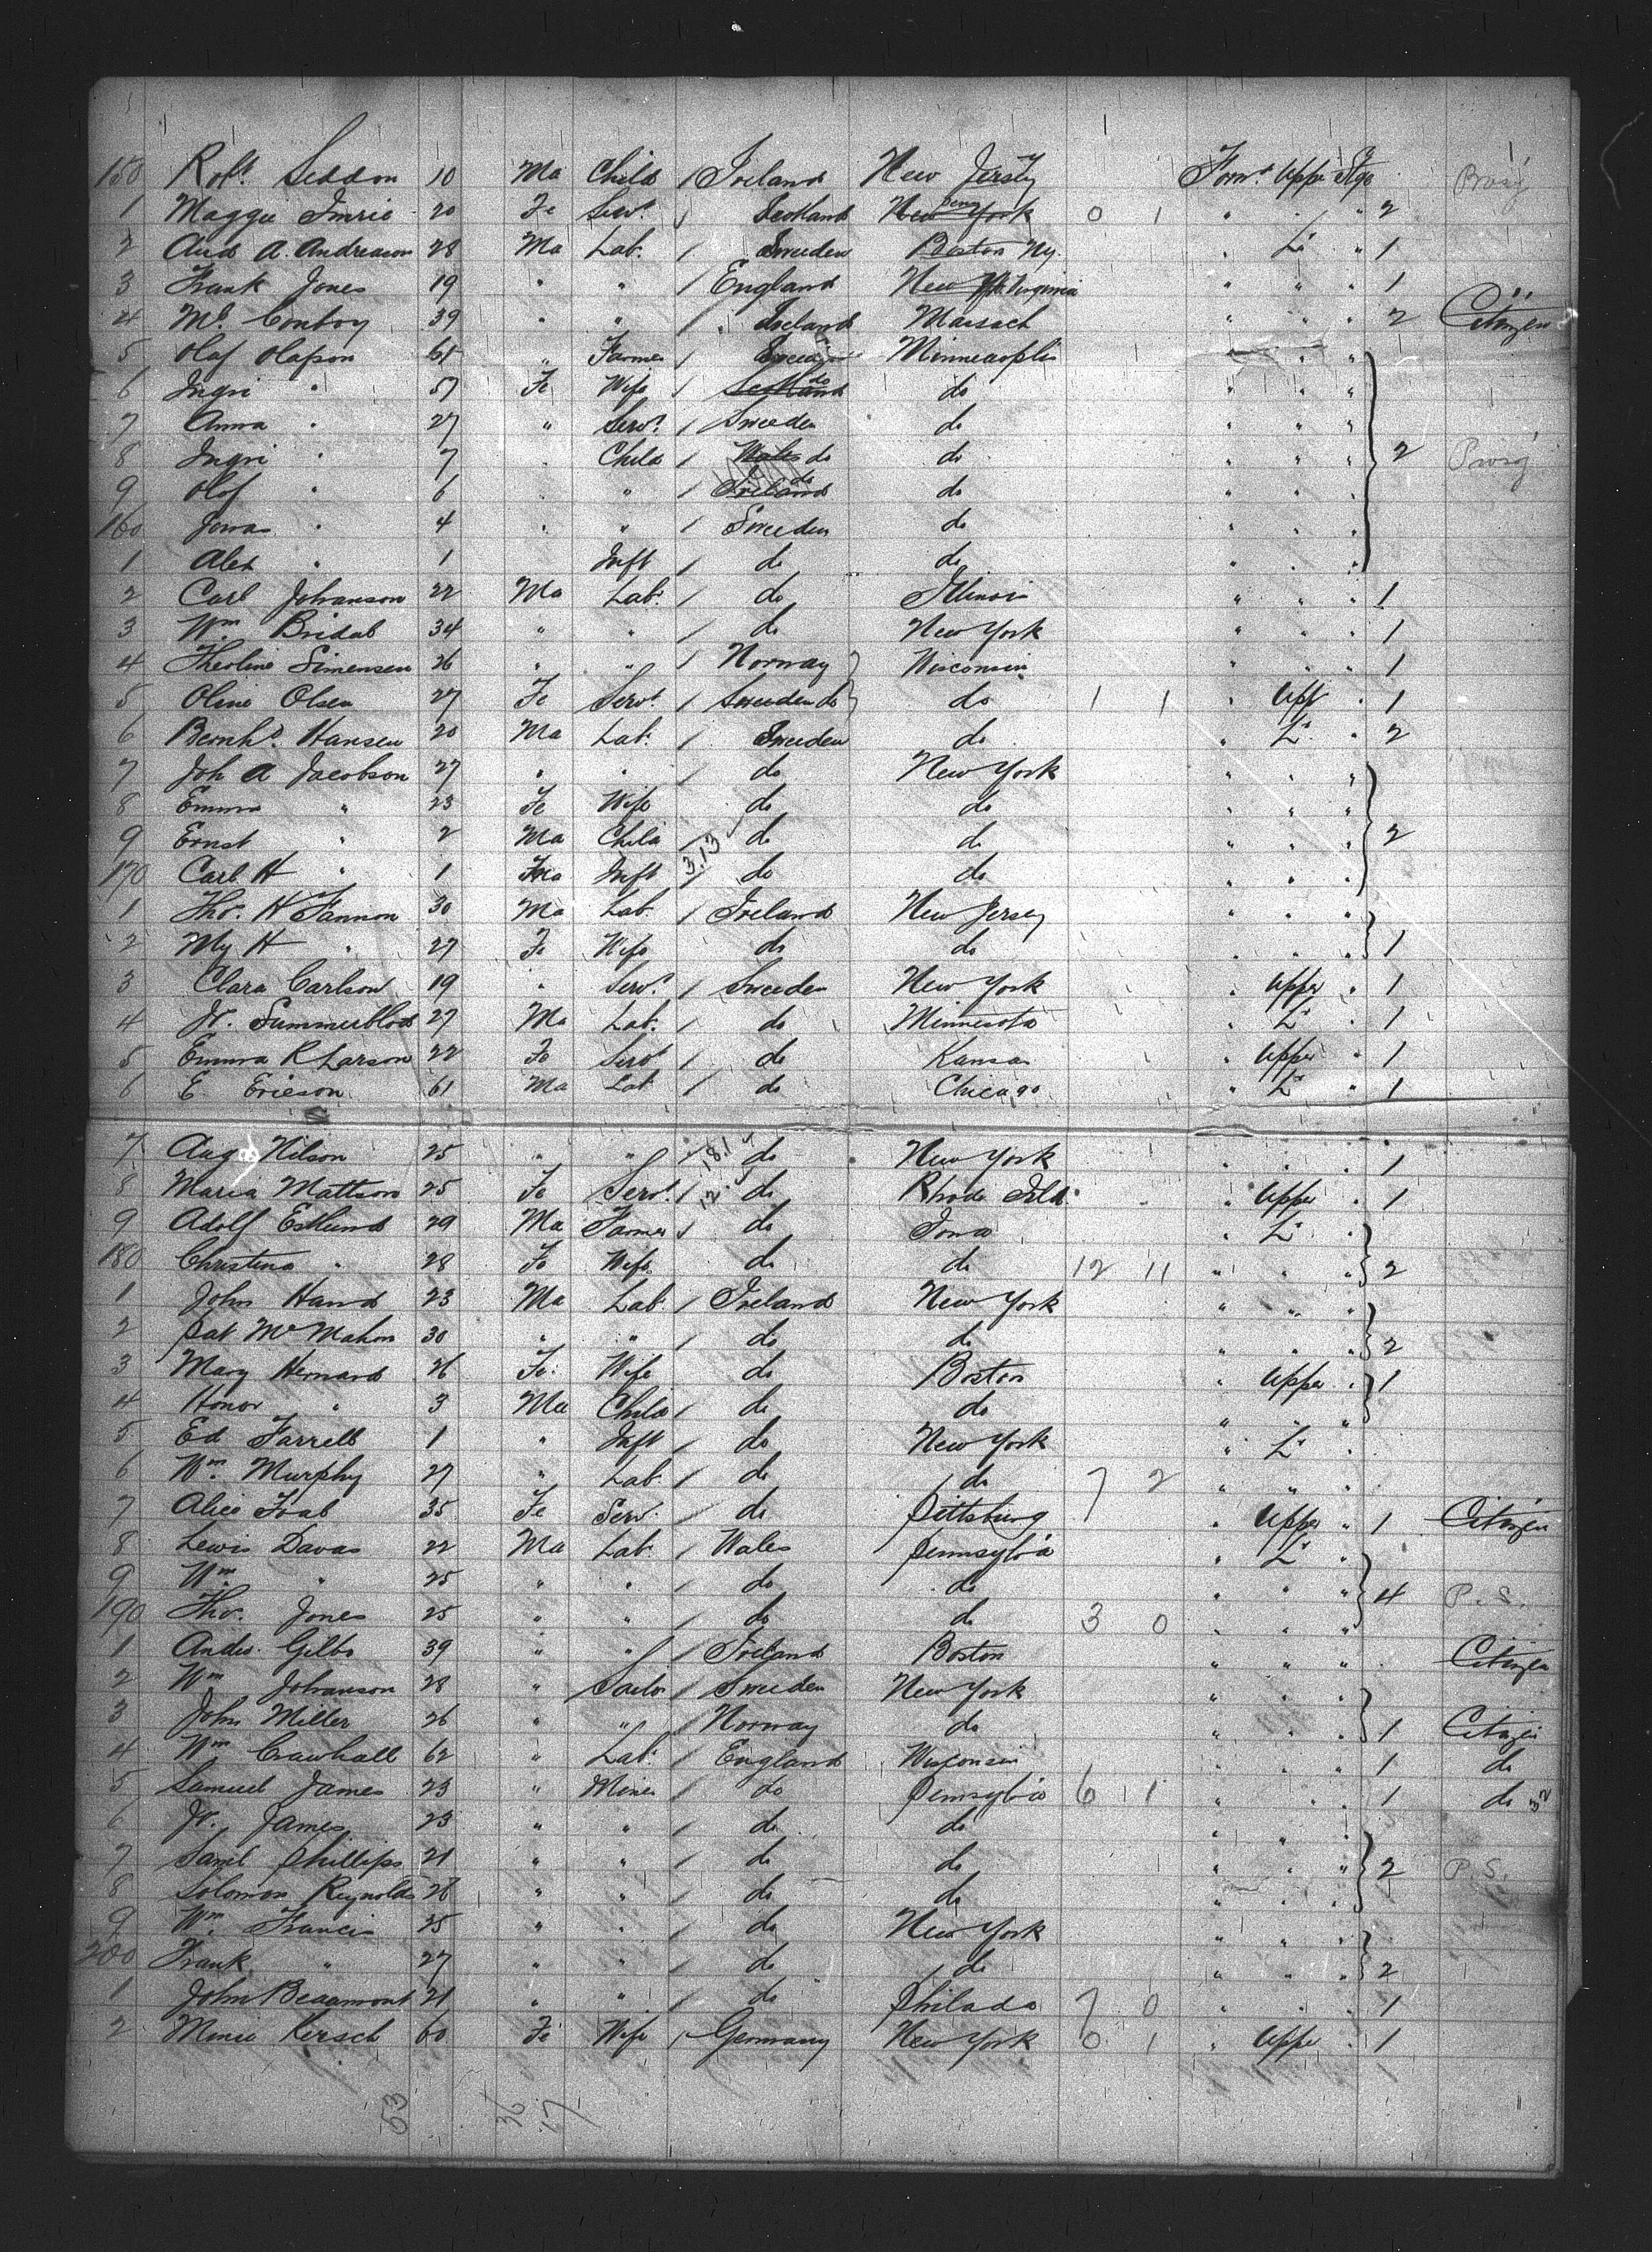 150 Robt. Seddon 10 Ma Child / Ireland New Jersey Forwd Upper Stge
1 Maggie Imrie 20 Fe Servt / Scotland New York 0 1 " " " 2
2 And A. Andreason 28 Ma Lab. / Sweden Boston Ny. " Lr " 1
3 Frank Jones 19 " " / England New Virginia " " " 1
4 Ml. Conboy 39 " " / Ireland Massach " " " 2 Citizen
5 Olof Olafson 61 " Farmer / Sweden Minneapolis " " "
6 Ingri " 57 Fe Wife / Scotland do do " " "
7 Anna " 27 " Servt / Sweden do " " "
8 Ingri " 7 " Child / Wales do do " " " 2
9 Olof " 6 " " / Ireland do do " " "
160 Jonas " 4 " " / Sweden do " " "
1 Alex " 1 Inft / do do " " "
2 Carl Johanson 22 Ma Lab. / do Illinois " " " 1
3 Wm Bridal 34 " " / do New York " " " 1
4 Theoline Simensen 26 " " / Norway Wisconsin " " " 1
5 Oline Olsen 27 Fe Servt / Sweden do do 1 1 " Upp " 1
6 Bernhd. Hansen 20 Ma Lab. / Sweden do " Lr " 2
7 Joh A Jacobson 27 " " / do New York " " "
8 Emma " 23 Fe Wife / do do " " "
9 Ernst " 2 Ma Child / do do " " " 2
170 Carl H " 1 Ma Inft / 3.13 do do " " "
1 Thos. H Fannon 30 Ma Lab. / Ireland New Jersey " " "
2 My H " 27 Fe Wife do do " " " 1
3 Clara Carlson 19 " Servt / Sweden New York " Upper " 1
4 Summerblod 27 Ma Lab. / do Minnesota " Lr " 1
5 Emma R Larson 22 Fe Servt / do Kansas " Upper " 1
6 E Ericson 61 Ma Lab / do Chicago " Lr " 1
7 Aug Nilson 25 " " / 18.1 do New York " " " 1
8 Maria Mattson 25 Fe Servt / 12 do Rhode Isld. " Upper " 1
9 Adolf Estlund 29 Ma Farmer / do Iowa " Lr "
180 Christina " 28 Fe Wife do do 12 11 " " " 2
1 John Hand 23 Ma Lab / Ireland New York " " "
2 Pat McMahon 30 " " / do do " " " 2
3 Mary Hernard 26 Fe. Wife / do Boston " Upper " 1
4 Honor " 3 Ma Child / do do " " "
5 Ed Farrell 1 " Inft / do New York " Lr "
6 Wm. Murphy 27 " Lab / do do 7 2 " " "
7 Alice 35 Fe Serv. / do Pittsburg " Upper " 1 Citizen
8 Lewis Davas 22 Ma Lab. / Wales Pennsylvia " Lr "
9 Wm. " 25 " " / do do " " " 4 P.S.
190 Thos. Jones 25 " " / do do 3 0 " " "
1 Andw. Gilbo 39 " " / Ireland Boston " " " Citizen
2 Wm Johanson 28 " Sailor / Sweden New York " " "
3 John Miller 26 " " / Norway do " " " 1 Citizen
4 Wm Crawhall 62 " Lab. / England Wisconsin " " " 1 do
5 Samuel James 23 " Miner / do Pennsylvia 6 1 " " " 1 do 32
6 James 23 " " / do do " " "
7 Saml Phillips 21 " " / do do " " " 2 P.S.
8 Solomon Reynolds 26 " " / do do " " "
9 Wm. Francis 25 " " / do New York " " "
200 Frank " 27 " " / do do " " " 2
1 John Beaumont 21 " " / do Philada 7 0 " " " 1
2 Minie Kersch 60 Fe Wife / Germany New York 0 1 " Upper " 1
53 36 17